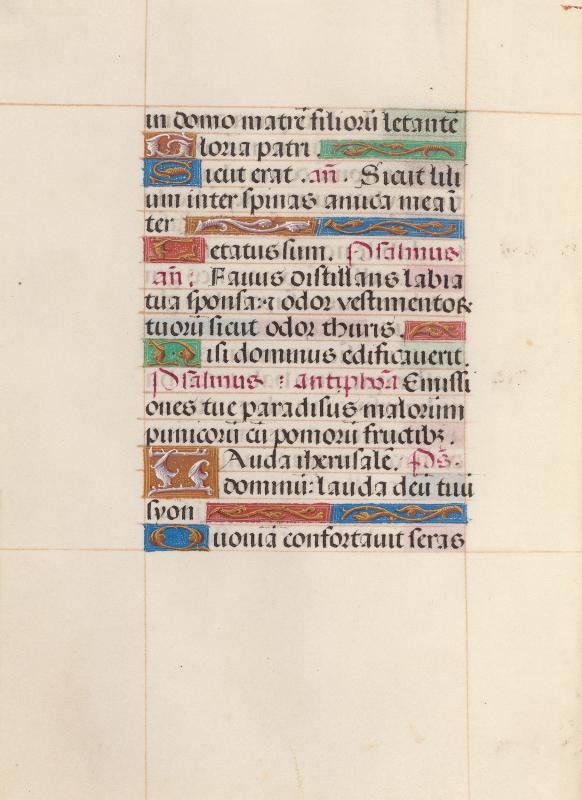 in domo matrē filiorū letantē
Gloria patri.
Sicut erat .añ. Sicut lili
um inter spinas amica mea ī
ter
Letatus sum. Psalmus
añ: Fauus distillans labia
tua sponsa: ⁊ odor vestimentoꝝ
tuorū sicut odor thuris.
Nisi dominus edificauerit.
Psalmus : antiphōa Emissi
ones tue paradisus malorum
punicorū cū pomorū fructibꝫ.
LAuda iherusalē. ps̄.
dominū: lauda deū tuū
syon
Quoniā confortauit seras